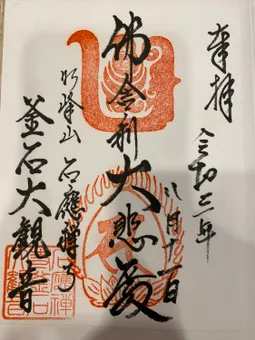 奉拝
令和三年
八月十一日
佛舎利大悲殿
明峰山石應禅寺
釜石大觀音